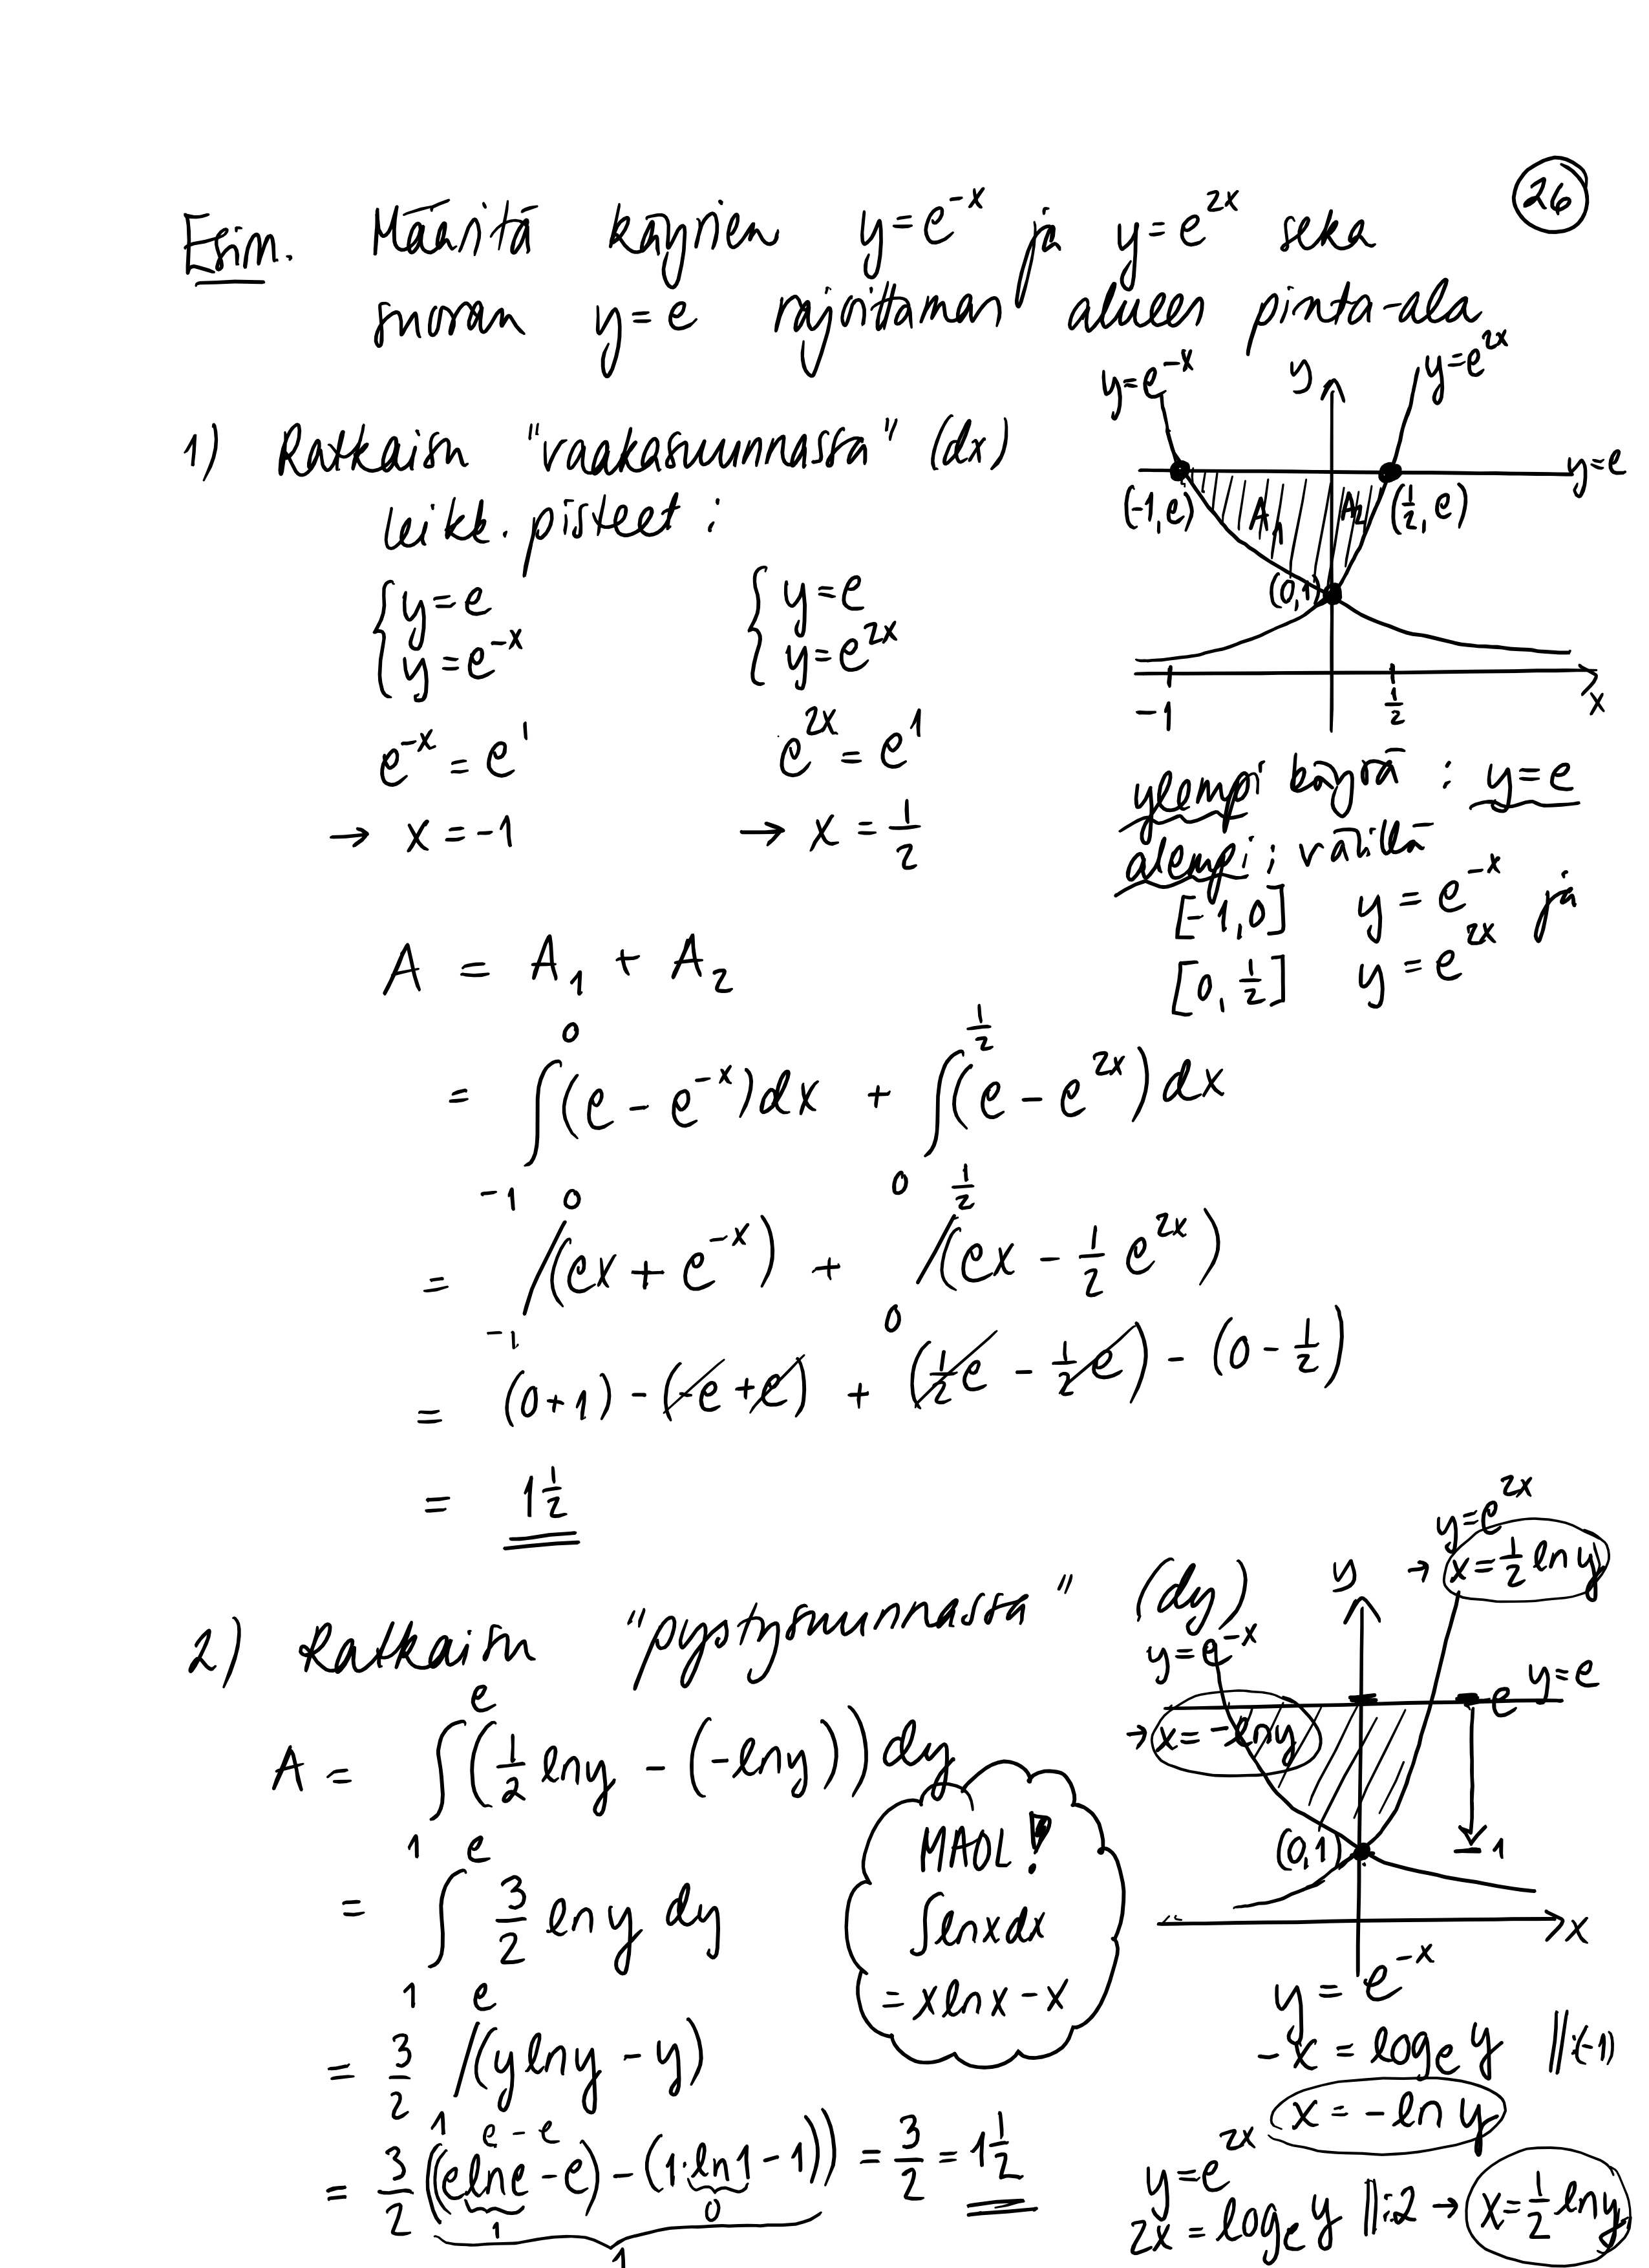 26
Esim. Määritä käyrien y = e^{-x} ja y = e^{2x} seka
suoran y = e rajoittaman alueen pinta-ala
1) Ratkaisu "vaakasuunnassa" (dx)
leikk. pisteet :
{ y = e
y = e^{-x}
e^{-x} = e^1
→ x = -1
{ y = e
y = e^{2x}
e^{2x} = e^1
→ x = 1/2
y = e^{-x}
y
y = e^{2x}
y = e
(-1, e)
A_1
A_2
(1/2, e)
(0,1)
-1
1/2
x
ylempi käyrä : y = e
alempi ; välillä
[-1,0] y = e^{-x} ja
[0, 1/2] y = e^{2x}
A = A_1 + A_2
= ∫_{-1}^{0} (e - e^{-x}) dx + ∫_{0}^{1/2} (e - e^{2x}) dx
= /_{-1}^{0} (ex + e^{-x}) + /_{0}^{1/2} (ex - 1/2 e^{2x})
= (0+1) - (-e+e) + (1/2 e - 1/2 e) - (0 - 1/2)
= 1 1/2
2) Ratkaisu "pystysuunnassa" (dy)
A = ∫_{1}^{e} (1/2 ln y - (-ln y)) dy
= ∫_{1}^{e} 3/2 ln y dy
= 3/2 /_{1}^{e} (y ln y - y)
e - e
= 3/2 ((e ln e - e) - (1·ln 1 - 1)) = 3/2 = 1 1/2
1
0
1
MAOL!
∫ ln x dx
= x ln x - x
y = e^{2x}
→ x = 1/2 ln y
y
y = e^{-x}
→ x = -ln y
e y = e
(0,1)
1
x
y = e^{-x}
-x = log_e y ||:(-1)
x = -ln y
y = e^{2x}
2x = log_e y ||:2 → x = 1/2 ln y